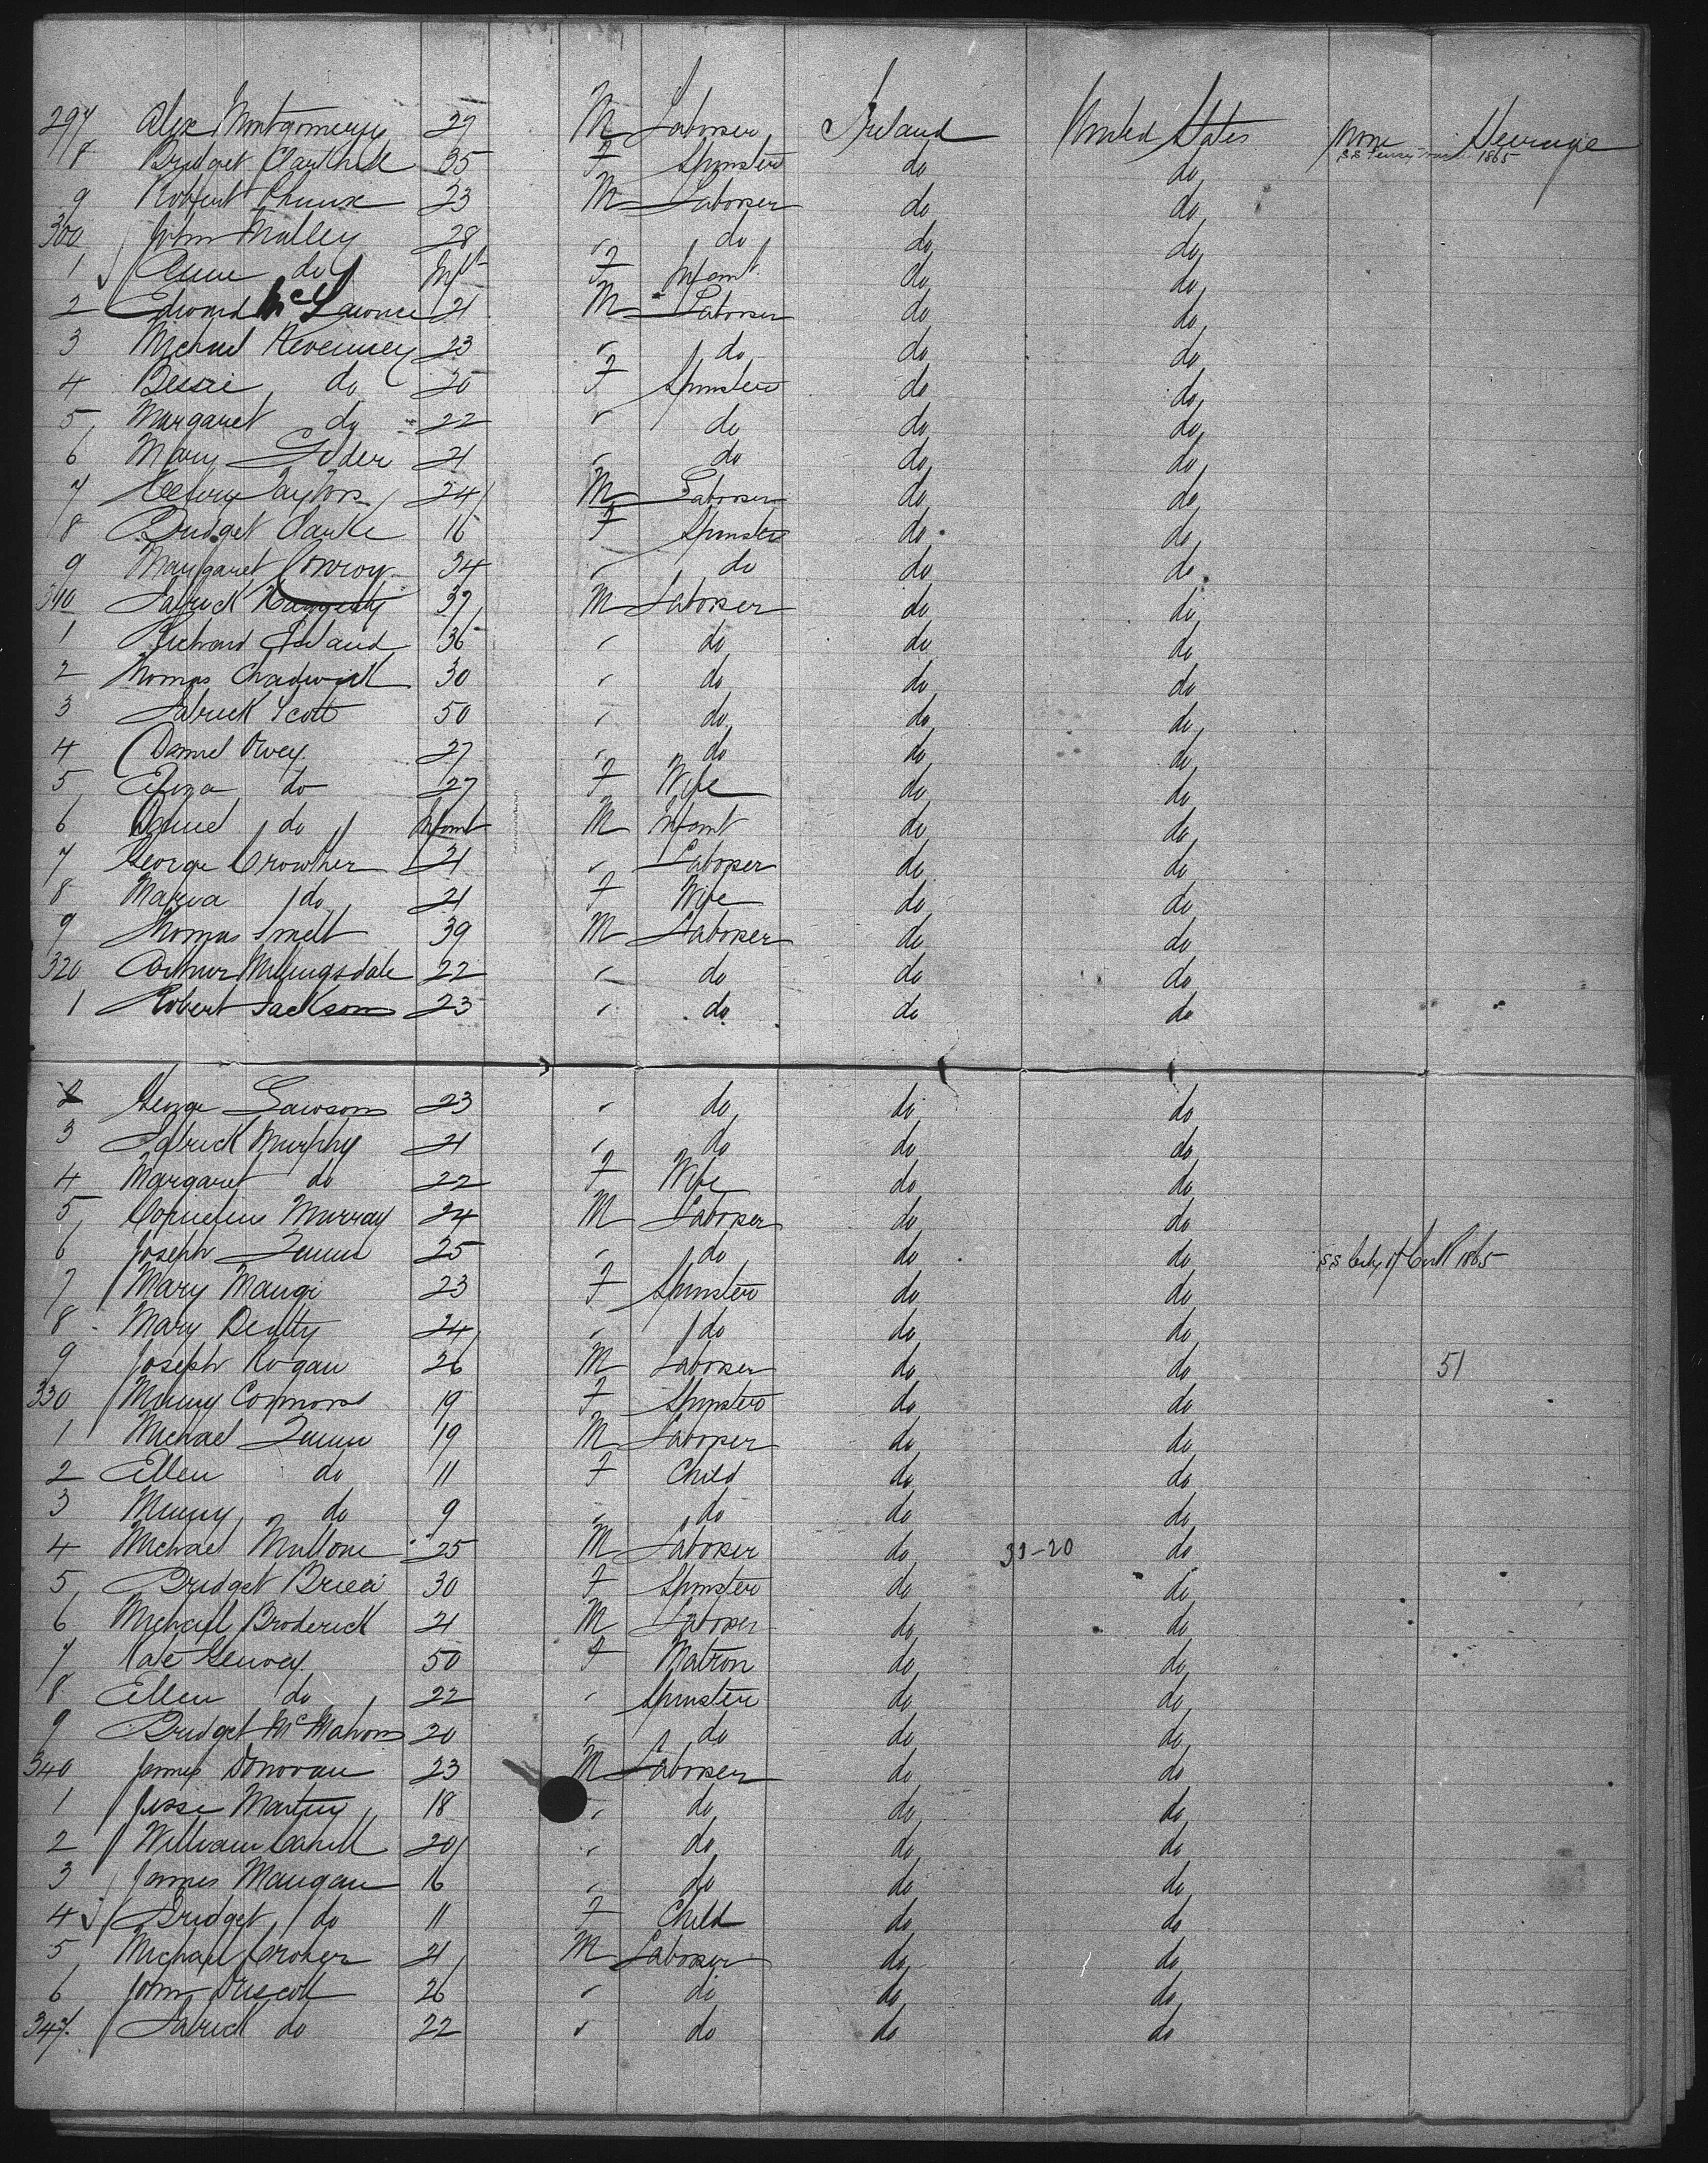 297 Alex Montgomery 27 M Laborer Ireland United States None Steerage
8 Bridget 35 F Spinster do do SS 1865
9 Robert 23 M Laborer do do
300 John Malley 28 " do do do
1 Anne do Inft F Infant do do
2 Edward Mc 21 M Laborer do do
3 Michael Kevenney 23 " do do do
4 Bessie do 20 F Spinster do do
5 Margaret do 22 " do do do
6 Mary 21 " do do do
7 Taylor 24 M Laborer do do
8 Bridget Clarke 16 F Spinster do do
9 Margaret Conroy 34 " do do do
310 Patrick Haggerty 37 M Laborer do do
1 Richard 36 " do do do
2 Thomas Chadwick 30 " do do do
3 Patrick Scott 50 " do do do
4 Daniel 27 " do do do
5 Eliza do 27 F Wife do do
6 Daniel do Infant M Infant do do
7 George Crowther 21 " Laborer do do
8 Maria do 21 F Wife do do
9 Thomas Smelt 39 M Laborer do do
320 Arthur 22 " do do do
1 Robert Jackson 23 " do do do
2 George Lawson 23 " do do do
3 Patrick Murphy 21 " do do do
4 Margaret do 22 F Wife do do
5 Cornelius Murray 24 M Laborer do do
6 Joseph Quinn 25 " do do do SS City of Cork 1865
7 Mary Mangi 23 F Spinster do do
8 Mary Beatty 24 " do do do
9 Joseph Rogan 26 M Laborer do do 51
330 Connors 19 F Spinster do do
1 Michael Quinn 19 M Laborer do do
2 Ellen do 11 F Child do do
3 do 9 " do do do
4 Michael Mullone 25 M Laborer do 31-20 do
5 Bridget 30 F Spinster do do
6 Michael Broderick 21 M Laborer do do
7 Kate 50 F Matron do do
8 Ellen do 22 " Spinster do do
9 Bridget McMahon 20 " do do do
340 James Donovan 23 M Laborer do do
1 Jesse 18 " do do do
2 William Cahill 20 " do do do
3 James Mangan 16 " do do do
4 Bridget do 11 F Child do do
5 Michael 21 M Laborer do do
6 John Driscoll 26 " do do do
347 Patrick do 22 " do do do